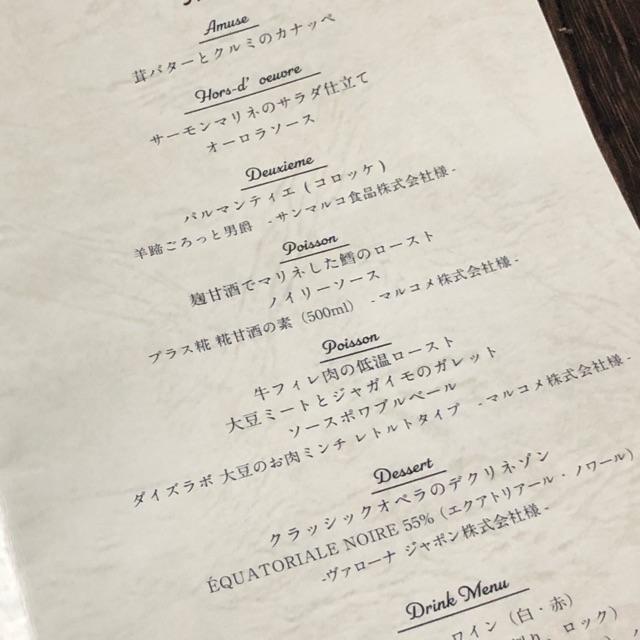 Amuse
茸バターとクルミのカナッペ
Hors-d' oeuvre
サーモンマリネのサラダ仕立て
オーロラソース
Deuxieme
パルマンティエ (コロッケ)
羊蹄ごろっと男爵 -サンマルコ食品株式会社様-
Poisson
麹甘酒でマリネした鱈のロースト
ノイリーソース
プラス糀 糀甘酒の素 (500ml) -マルコメ株式会社様-
Poisson
牛フィレ肉の低温ロースト
大豆ミートとジャガイモのガレット
ソースポワブルペール
ダイズラボ 大豆のお肉ミンチ レトルトタイプ -マルコメ株式会社様-
Dessert
クラッシックオペラのデクリネゾン
ÉQUATORIALE NOIRE 55% (エクアトリアール・ノワール)
-ヴァローナ ジャポン株式会社様-
Drink Menu
ワイン (白・赤)
ロック)